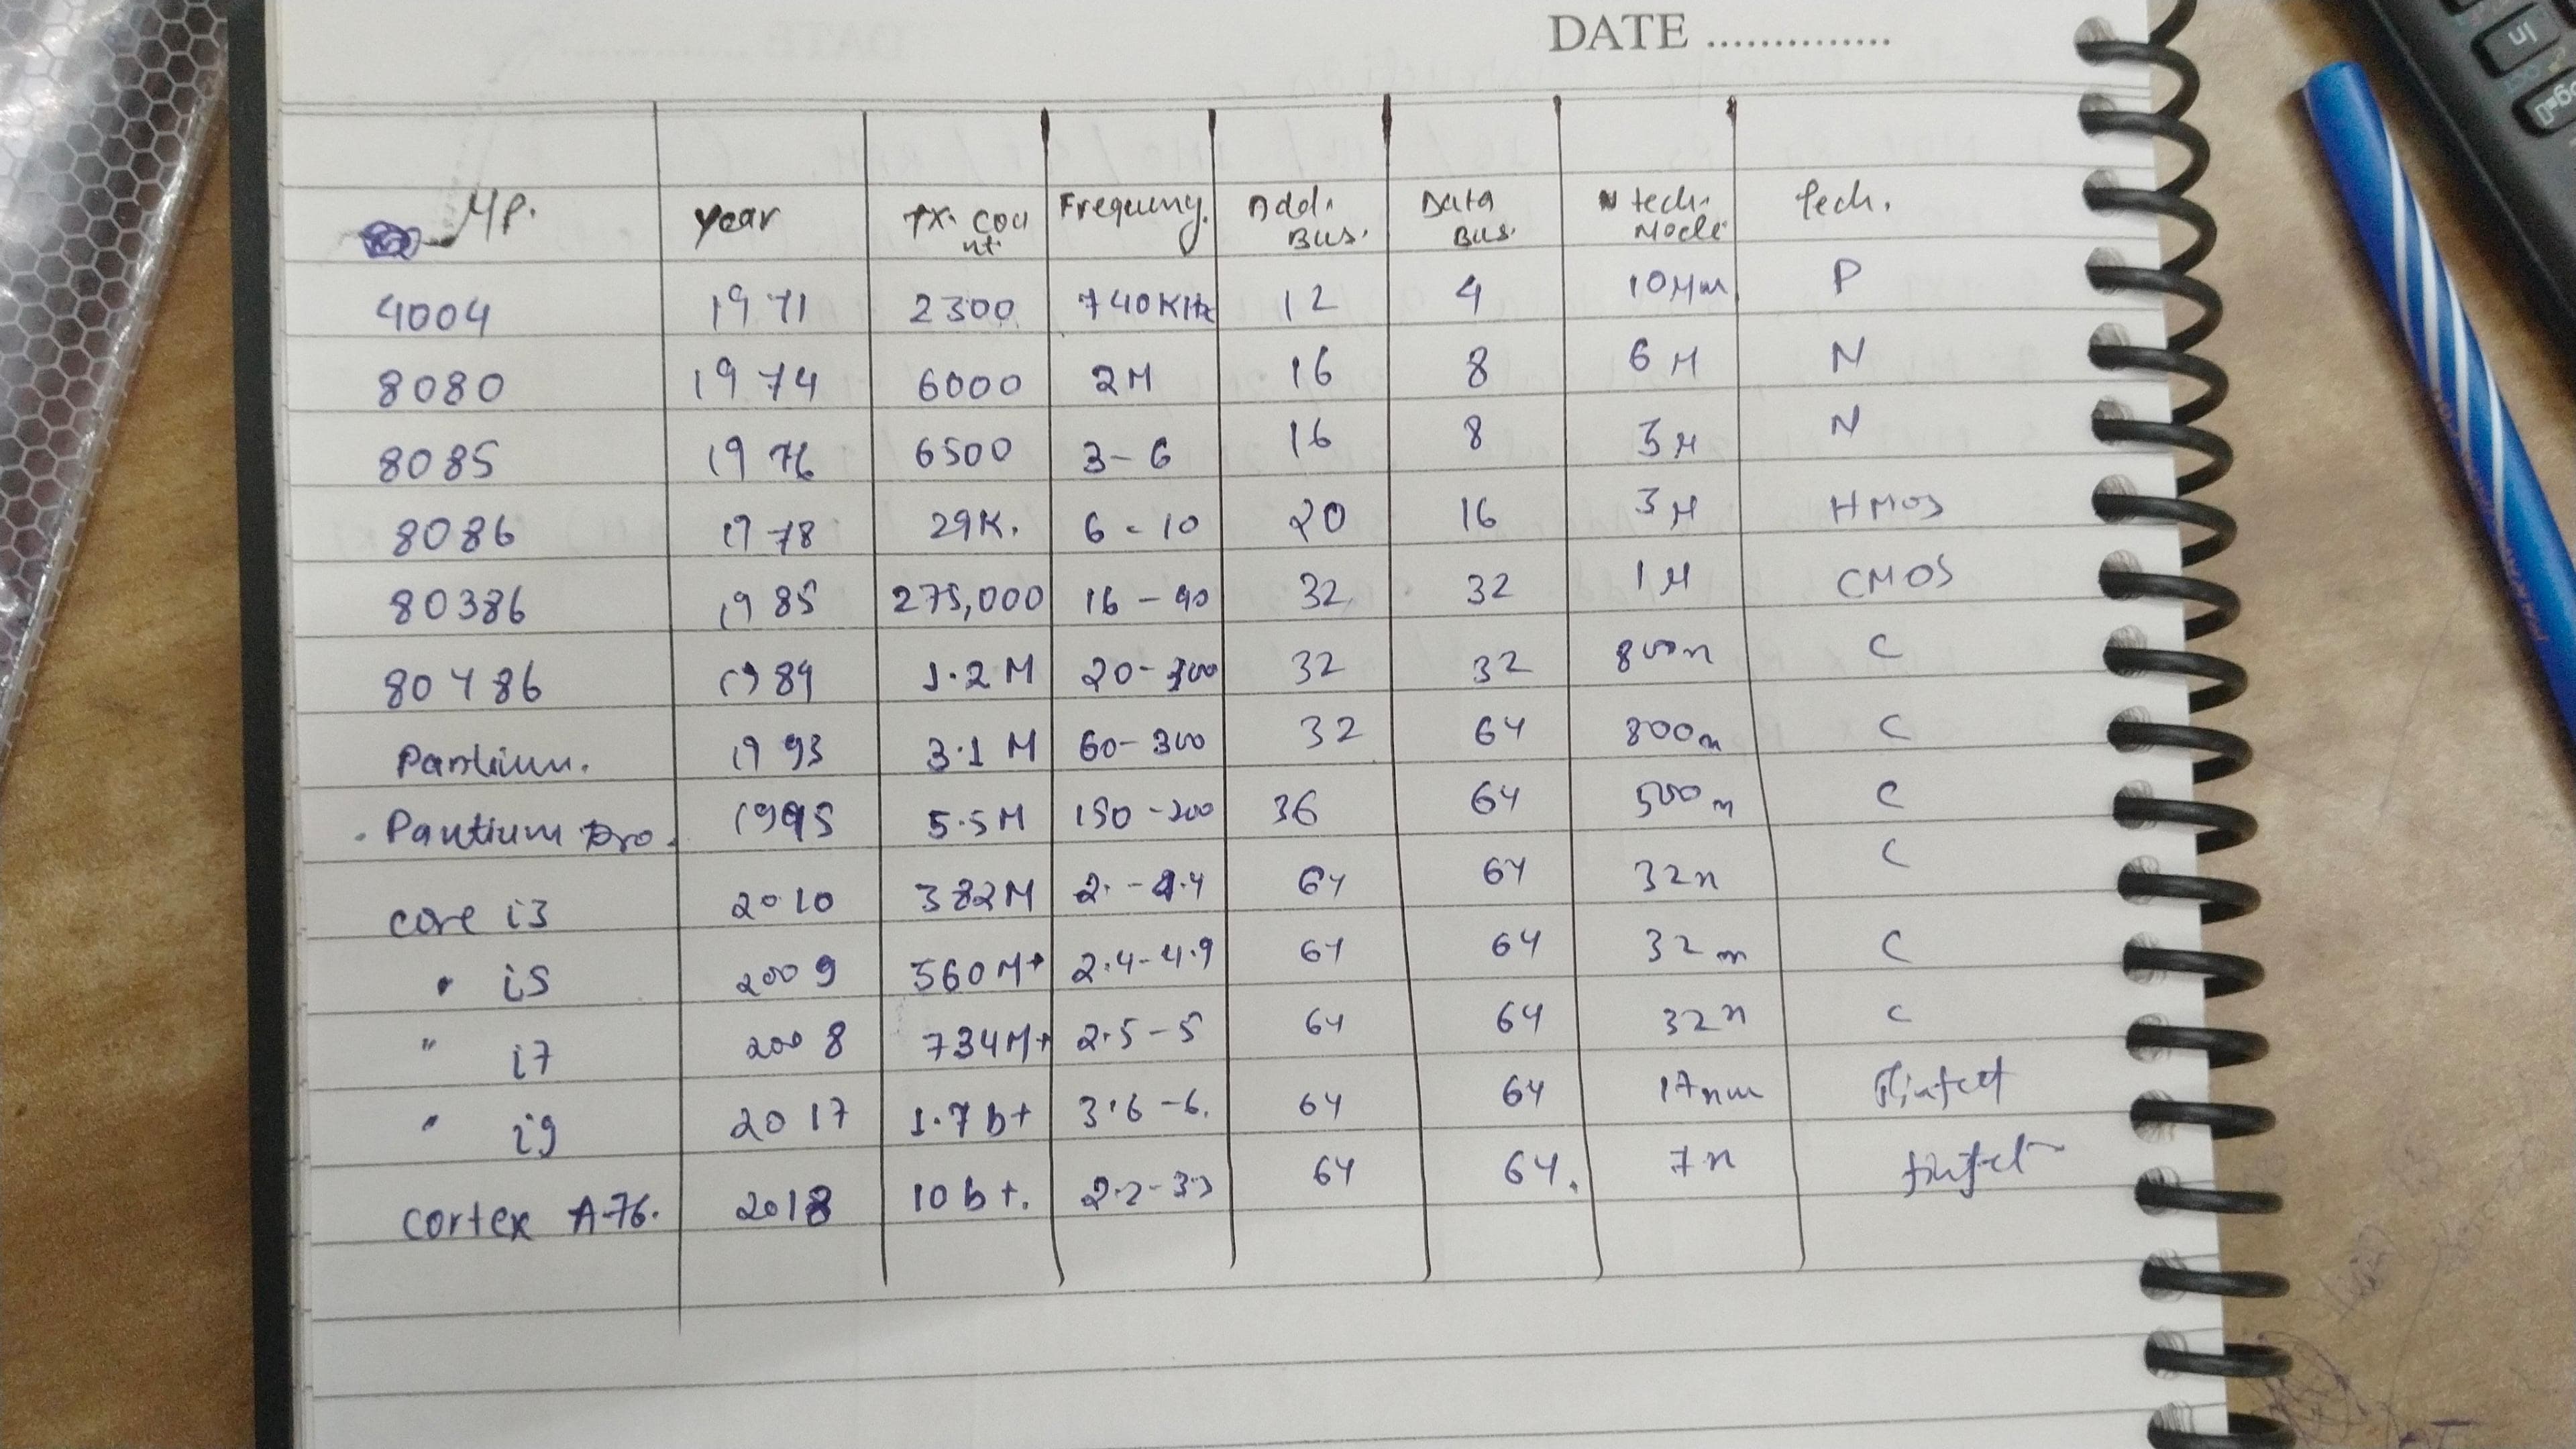 DATE ..............
μP. Year Tx. Count Frequency. Add. Bus. Data Bus. tech. Node Tech.
4004 1971 2300 740KHz 12 4 10μm P
8080 1974 6000 2M 16 8 6μ N
8085 1976 6500 3-6 16 8 3μ N
8086 1978 29K. 6-10 20 16 3μ HMOS
80386 1985 275,000 16-40 32 32 1μ CMOS
80486 1989 1.2M 20-100 32 32 800n C
Pantium. 1993 3.1M 60-300 32 64 800n C
Pantium Pro. 1995 5.5M 150-200 36 64 500n C
core i3 2010 382M 2.-4.4 64 64 32n C
" i5 2009 560M+ 2.4-4.9 64 64 32n C
" i7 2008 734M+ 2.5-5 64 64 32n C
" i9 2017 1.7b+ 3.6-6. 64 64 17nm Finfet
cortex A-76. 2018 10b+. 2.2-3.3 64 64. 7n finfet